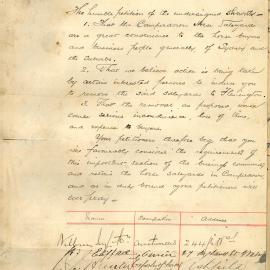 The humble petition of the undersigned sheweth:-
1. That the Camperdown Area Saleyards
are a great convenience to the horse buyers
and business people generally of Sydney and
the suburbs.
2. That we believe action is being taken
by certain interested persons to induce you
to remove the said saleyards to Flemington.
3. That the removal as proposed would
cause serious inconvenience, loss of time,
and expense to buyers.
Your petitioners therefore beg that you
will favourably consider the requirements of
this important section of the buying community
and retain the horse saleyards in Camperdown
and as in duty bound your petitioners will
ever pray:-
Name Occupation Address
William Auctioneer 244 Pitt
27